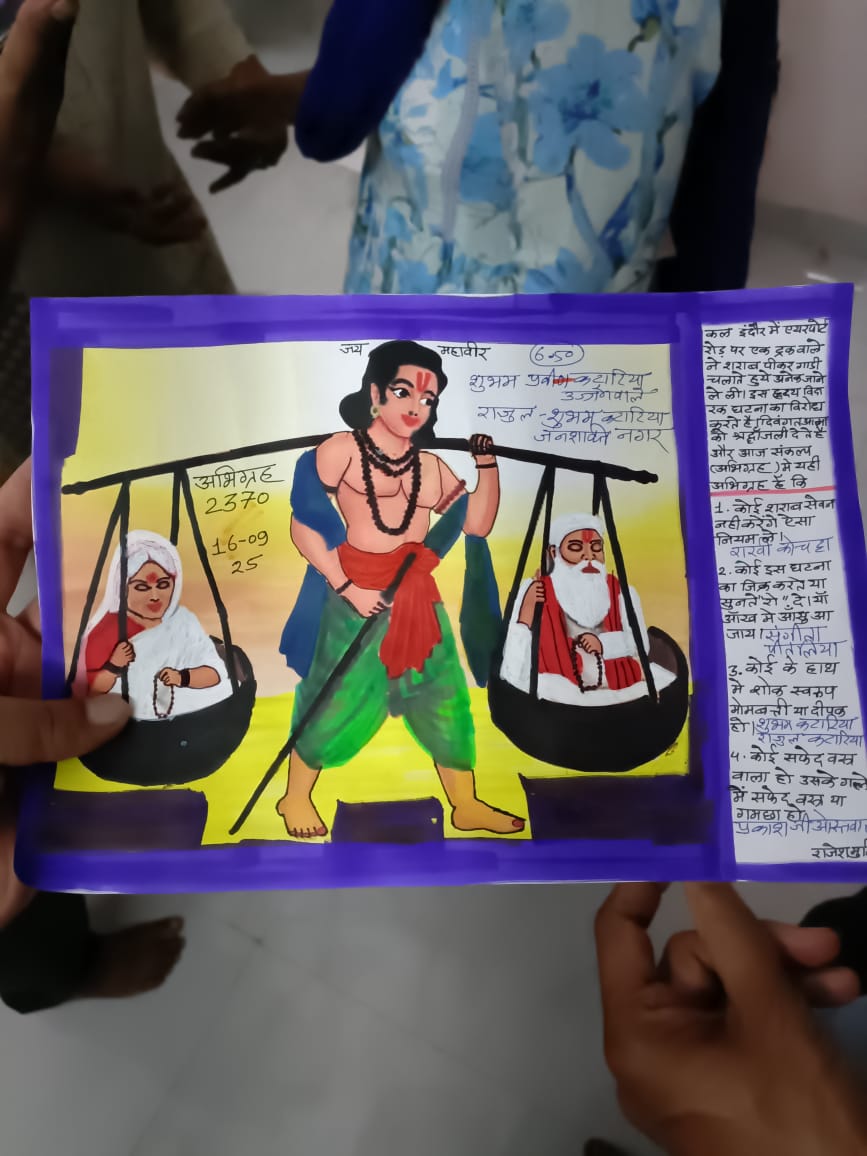 जय महावीर
6-50
शुभम प्रवीण कटारिया
उज्जैनवाले
राजुल - शुभम कटारिया
जनशक्ति नगर
अभिग्रह
2370
16-09
25
कल इंदौर में एयरपोर्ट
रोड़ पर एक ट्रक वाले
ने शराब पीकर गाडी
चलाते हुये अनेक जाने
ले ली। इस ह्रदय विदा
रक घटना का विरोध
करते है, दिवंगत आत्मा
को श्रद्धांजली देते है
और आज संकल्प
(अभिग्रह) मे यही
अभिग्रह है कि
1. कोई शराब सेवन
नही करेंगे ऐसा
नियम ले।
राखी कोचट्टा
2. कोई इस घटना
का जिक्र करते या
सुनते रो "दे। याँ
आँख मे आँसु आ
जाय। संगीता
पीतलिया
3. कोई के हाथ
मे शोक स्वरुप
मोमबत्ती या दीपक
हो। शुभम कटारिया
राजुल कटारिया
4. कोई सफेद वस्त्र
वाला हो उसके गले
में सफेद वस्त्र या
गमछा हो।
प्रकाश जी ओस्तवाल
राजेशमुनि